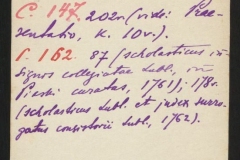 C. 147. 202v (vide: Prae-
sentatio, K. 10v.).
P. 162. 87 (scholasticus in-
signis collegiatae Lubl., in
Piaski curatus, 1761); 178v.
(scholasticus Lubl. et judex surro-
gatus consistorii Lubl., 1762).